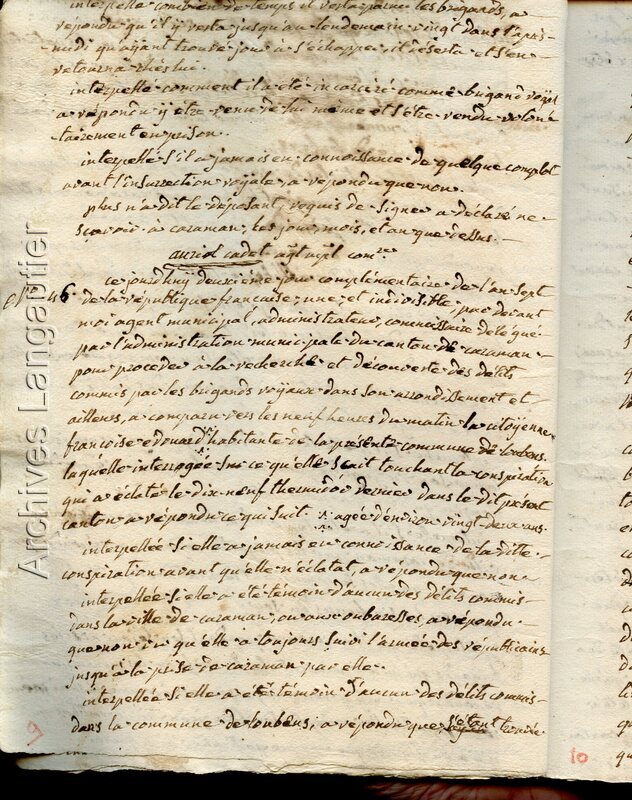 interpellé combien de temps il resta parmi les brigands, a
répondu qu'il y resta jusqu'au lendemain vingt dans l'après
midi qu'ayant trouvé jour à s'échapper, il déserta et s'en
retourna chés lui.
interpellé comment il a été incarceré comme brigand royal
a répondu y être venu de lui même et s'être rendu volon-
tairement en prison.
interpellé s'il a jamais eu connoissance de quelque complot
avant l'insurrection royale, a répondu que non.
plus n'a dit le déposant, requis de signer a déclaré ne
sçavoir. à caraman, les jour, mois, et an que dessus.
auriol cadet agt mpl comre
N° 46
ce jourdhuy deuxième jour complémentaire de l'an sept
de la république françoise, une et indivisible, par devant
moi agent municipal, administrateur, commissaire délégué
par l'administration municipale du canton de caraman
pour proceder à la recherche et découverte des délits
commis par les brigands royaux dans son arrondissement et
ailleurs, a comparu vers les neuf heures du matin la citoyenne
françoise edouard habitante de la présente commune de loubens
laquelle interrogée sur ce qu'elle scait touchant la conspiration
qui a éclaté le dix-neuf thermidor dernier dans le dit présent
canton a répondu ce qui suit. agée d'environ vingt deux ans.
interpellée si elle a jamais eu connoissance de la ditte
conspiration avant qu'elle n'éclatat, a répondu que non
interpellée si elle a été témoin d'aucun des délits commis
dans la ville de caraman, ou aux oubaresses, a répondu
que non qu'elle a toujours suivi l'armée des républicains
jusqu'à la prise de caraman par elle.
interpellée si elle a été témoin d'aucun des délits commis
dans la commune de loubens, a répondu que, s'étant
9
10
Archives Langautier